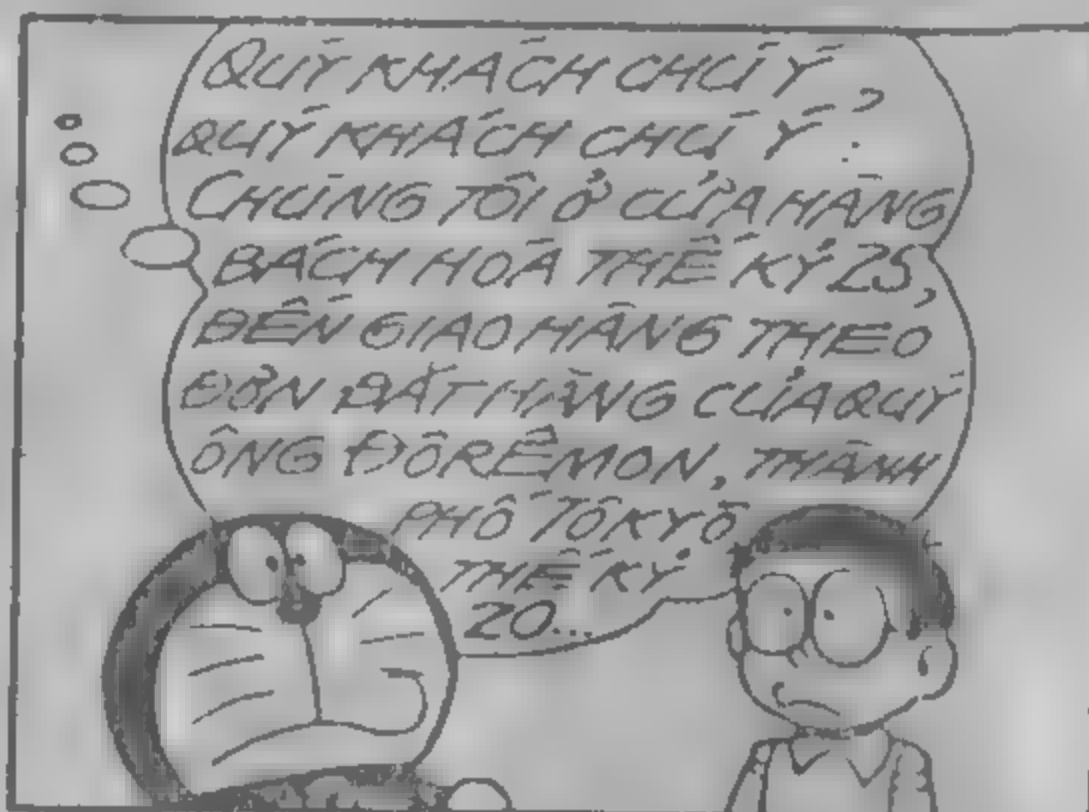 QUÝ KHÁCH CHÚ Ý,
QUÝ KHÁCH CHÚ Ý:
CHÚNG TÔI Ở CỬA HÀNG
BÁCH HOÁ THẾ KỶ 25,
ĐẾN GIAO HÀNG THEO
ĐƠN ĐẶT HÀNG CỦA QUÝ
ÔNG ĐÔRÊMON, THÀNH
PHỐ TÔKYÔ
THẾ KỶ
20...